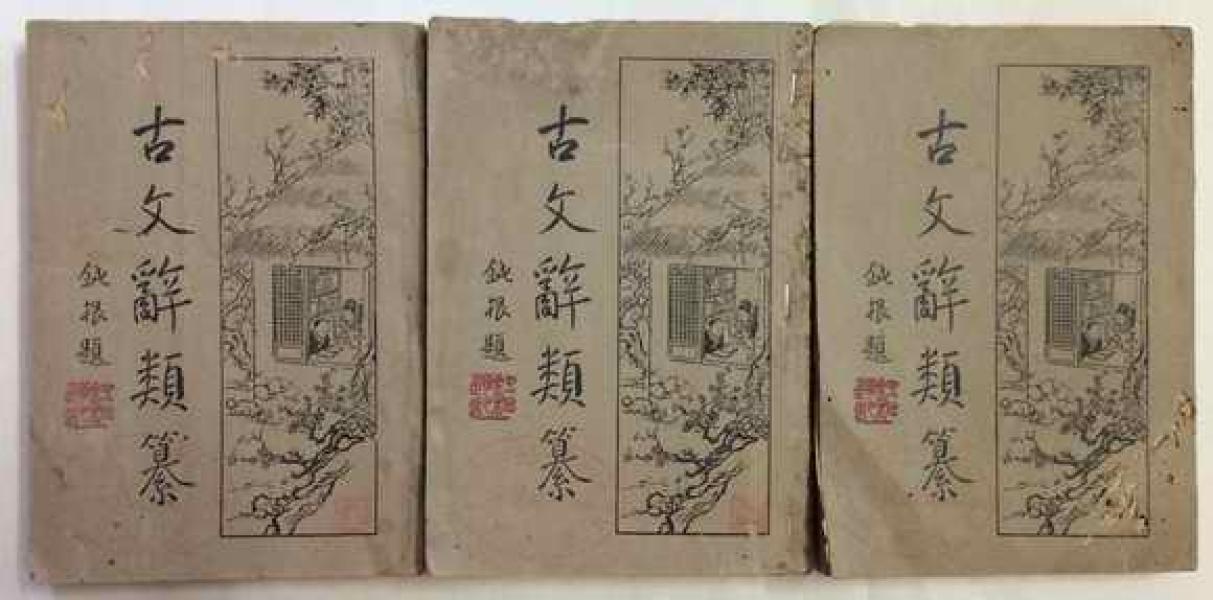 古文辭類纂
鈍根題
古文辭類纂
鈍根題
古文辭類纂
鈍根題